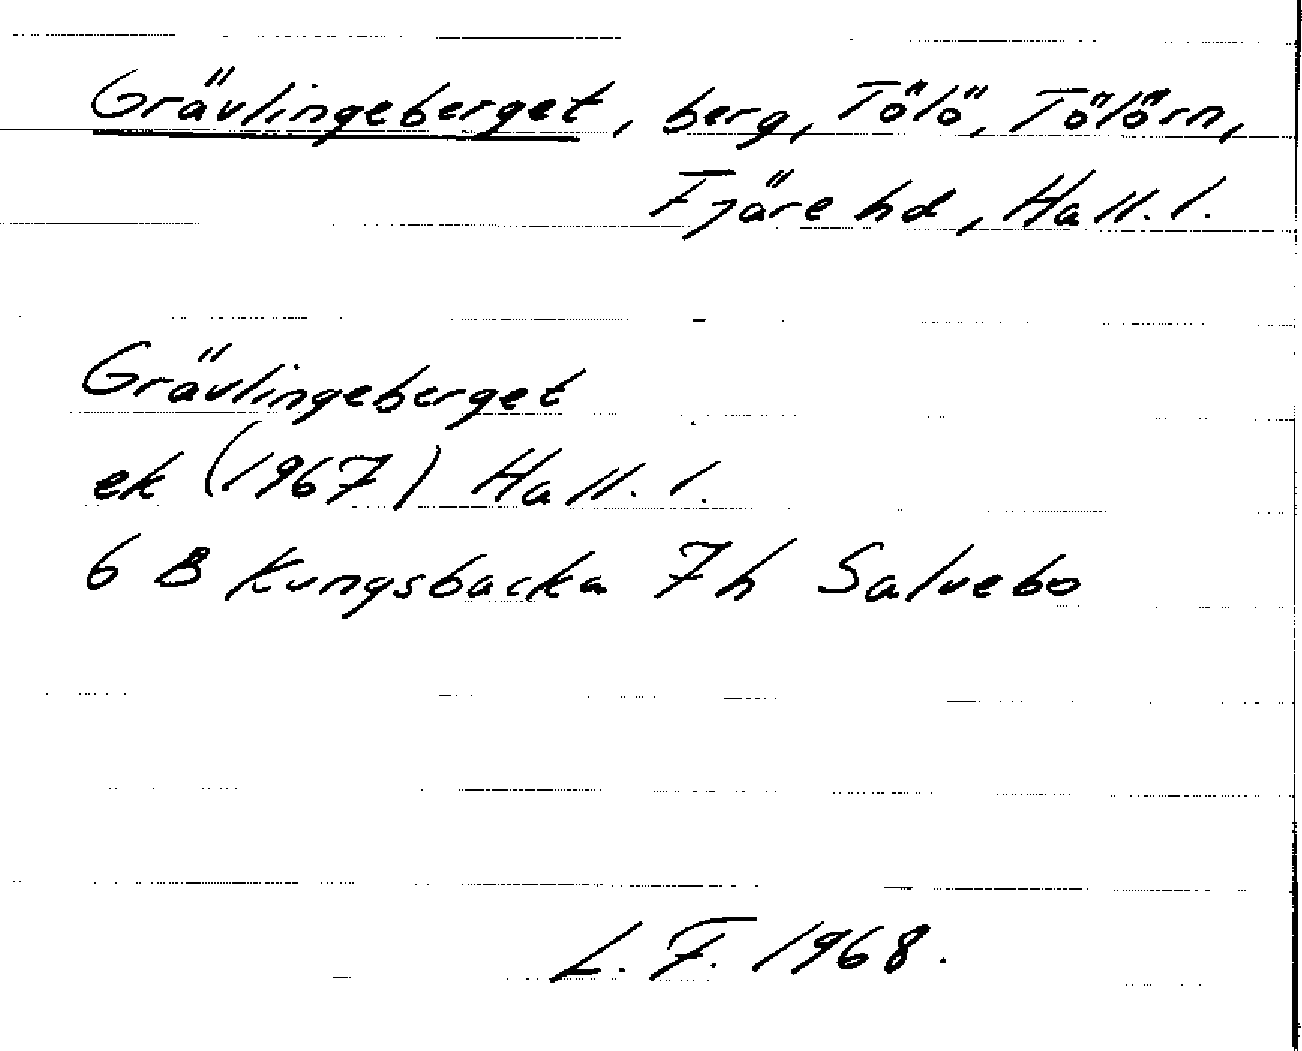 Grävlingeberget, berg, Tölö, Tölörn,
Fjäre hd, Hall. l.
Grävlingeberget
ek (1967) Hall. l.
6 B Kungsbacka 7h Salvebo
L. F. 1968.